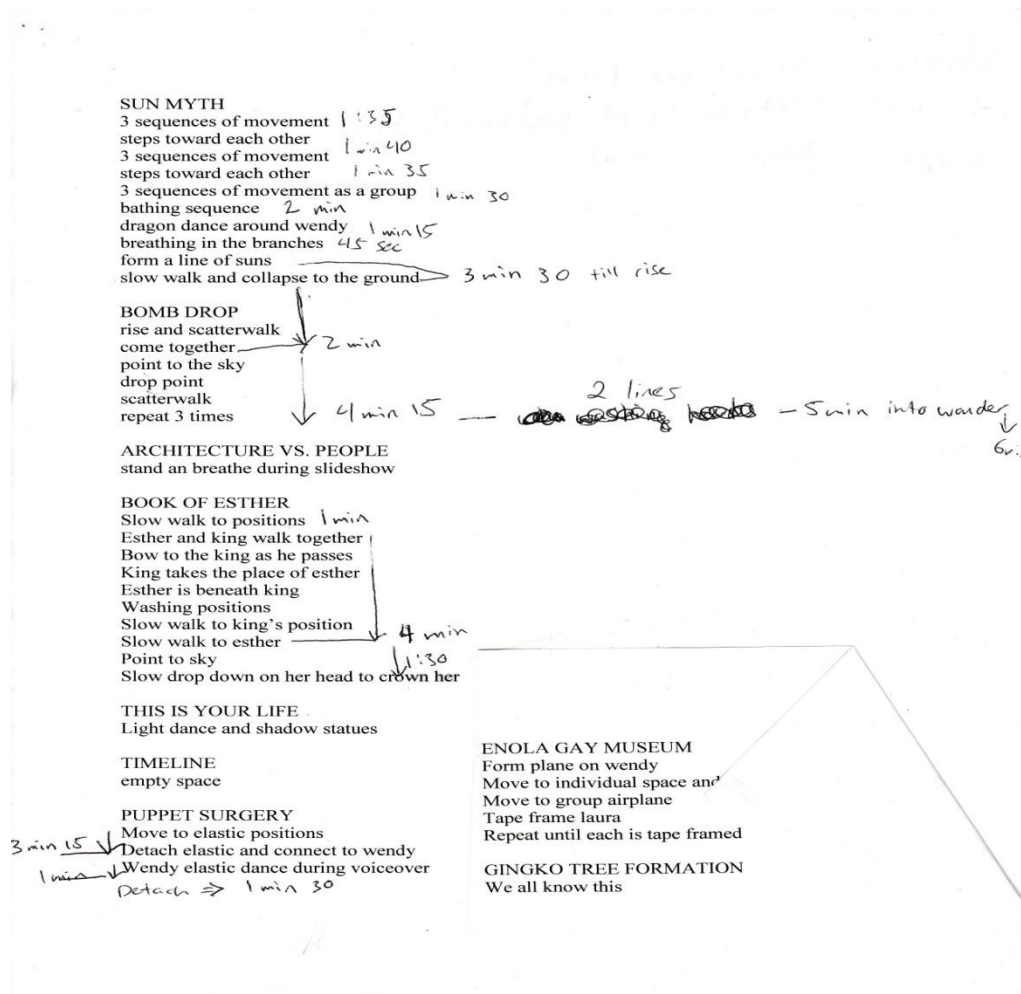 SUN MYTH
3 sequences of movement 1:35
steps toward each other
3 sequences of movement 1 min 40
steps toward each other 1 min 35
3 sequences of movement as a group 1 min 30
bathing sequence 2 min
dragon dance around wendy 1 min 15
breathing in the branches 45 sec
form a line of suns
slow walk and collapse to the ground 3 min 30 till rise
BOMB DROP
rise and scatterwalk
come together 2 min
point to the sky
drop point
scatterwalk
2 lines
repeat 3 times 4 min 15 — — 5 min into wander
ARCHITECTURE VS. PEOPLE
stand an breathe during slideshow
BOOK OF ESTHER
Slow walk to positions 1 min
Esther and king walk together
Bow to the king as he passes
King takes the place of esther
Esther is beneath king
Washing positions
Slow walk to king's position
Slow walk to esther 4 min
Point to sky 1:30
Slow drop down on her head to crown her
THIS IS YOUR LIFE
Light dance and shadow statues
TIMELINE
empty space
PUPPET SURGERY
Move to elastic positions
3 min 15 Detach elastic and connect to wendy
1 min Wendy elastic dance during voiceover
Detach ⇒ 1 min 30
ENOLA GAY MUSEUM
Form plane on wendy
Move to individual space and
Move to group airplane
Tape frame laura
Repeat until each is tape framed
GINGKO TREE FORMATION
We all know this